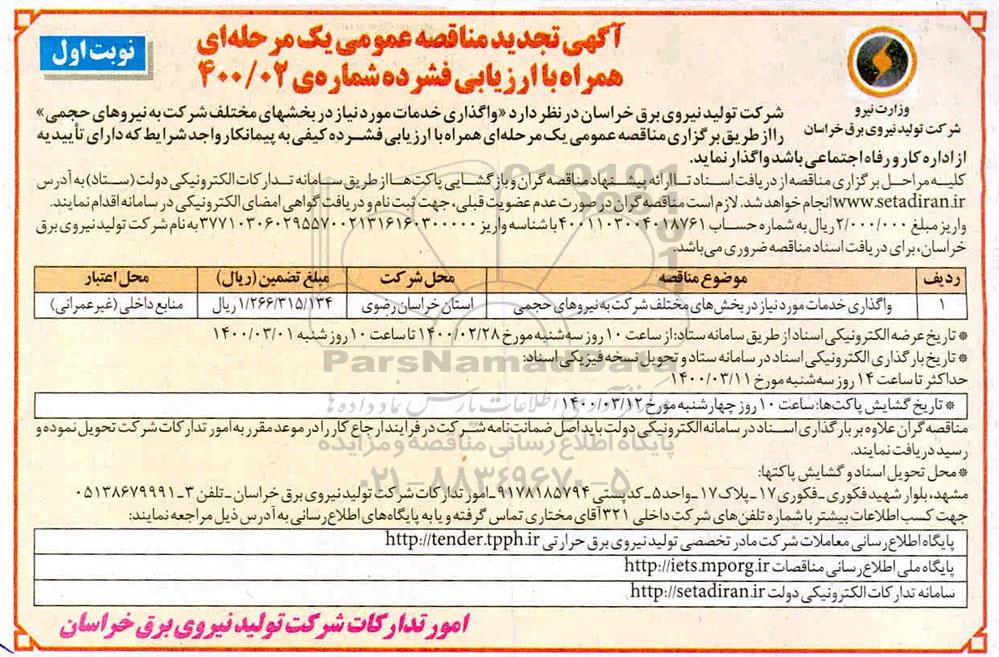 آگهی تجدید مناقصه عمومی یک مرحله‌ای
همراه با ارزیابی فشرده شماره‌ی ۴۰۰/۰۲
نوبت اول
وزارت نیرو
شرکت تولید نیروی برق خراسان
شرکت تولید نیروی برق خراسان در نظر دارد «واگذاری خدمات مورد نیاز در بخشهای مختلف شرکت به نیروهای حجمی»
را از طریق برگزاری مناقصه عمومی یک مرحله‌ای همراه با ارزیابی فشرده کیفی به پیمانکار واجد شرایط که دارای تأییدیه
از اداره کار و رفاه اجتماعی باشد واگذار نماید.
کلیه مراحل برگزاری مناقصه از دریافت اسناد تا ارائه پیشنهاد مناقصه‌گران و بازگشایی پاکت‌ها از طریق سامانه تدارکات الکترونیکی دولت (ستاد) به آدرس
www.setadiran.ir انجام خواهد شد. لازم است مناقصه‌گران در صورت عدم عضویت قبلی، جهت ثبت نام و دریافت گواهی امضای الکترونیکی در سامانه اقدام نمایند.
واریز مبلغ ۲/۰۰۰/۰۰۰ ریال به شماره حساب ۴۰۰۱۱۰۳۰۰۴۰۲۸۷۶۱ با شناسه واریز ۳۷۷۱۰۳۰۶۰۲۹۵۵۷۰۰۲۱۳۱۶۱۶۰۳۰۰۰۰۰ به نام شرکت تولید نیروی برق
خراسان، برای دریافت اسناد مناقصه ضروری می‌باشد.
ردیف موضوع مناقصه محل شرکت مبلغ تضمین (ریال) محل اعتبار
۱ واگذاری خدمات مورد نیاز در بخش‌های مختلف شرکت به نیروهای حجمی استان خراسان رضوی ۱/۲۶۶/۳۱۵/۱۳۴ ریال منابع داخلی (غیر عمرانی)
* تاریخ عرضه الکترونیکی اسناد از طریق سامانه ستاد: از ساعت ۱۰ روز سه‌شنبه مورخ ۱۴۰۰/۰۲/۲۸ تا ساعت ۱۰ روز شنبه ۱۴۰۰/۰۳/۰۱
* تاریخ بارگذاری الکترونیکی اسناد در سامانه ستاد و تحویل نسخه فیزیکی اسناد:
حداکثر تا ساعت ۱۴ روز سه‌شنبه مورخ ۱۴۰۰/۰۳/۱۱
* تاریخ گشایش پاکت‌ها: ساعت ۱۰ روز چهارشنبه مورخ ۱۴۰۰/۰۳/۱۲
مناقصه‌گران علاوه بر بارگذاری اسناد در سامانه الکترونیکی دولت باید اصل ضمانت‌نامه شرکت در فرایند ارجاع کار را در موعد مقرر به امور تدارکات شرکت تحویل نموده و
رسید دریافت نمایند.
* محل تحویل اسناد و گشایش پاکتها:
مشهد، بلوار شهید فکوری - فکوری ۱۷ - پلاک ۱۷ - واحد ۵ - کدپستی ۹۱۷۸۱۸۵۷۹۴ - امور تدارکات شرکت تولید نیروی برق خراسان - تلفن ۳-۰۵۱۳۸۶۷۹۹۹۱
جهت کسب اطلاعات بیشتر با شماره تلفن‌های شرکت داخلی ۳۲۱ آقای مختاری تماس گرفته و یا به پایگاه‌های اطلاع‌رسانی به آدرس ذیل مراجعه نمایند:
پایگاه اطلاع رسانی معاملات شرکت مادر تخصصی تولید نیروی برق حرارتی http://tender.tpph.ir
پایگاه ملی اطلاع رسانی مناقصات http://iets.mporg.ir
سامانه تدارکات الکترونیکی دولت http://setadiran.ir
امور تدارکات شرکت تولید نیروی برق خراسان
ParsNamadData
مرکز فرآوری اطلاعات پارس نماد داده‌ها
پایگاه اطلاع رسانی مناقصه و مزایده
۰۲۱-۸۸۳۴۹۶۷۰-۵